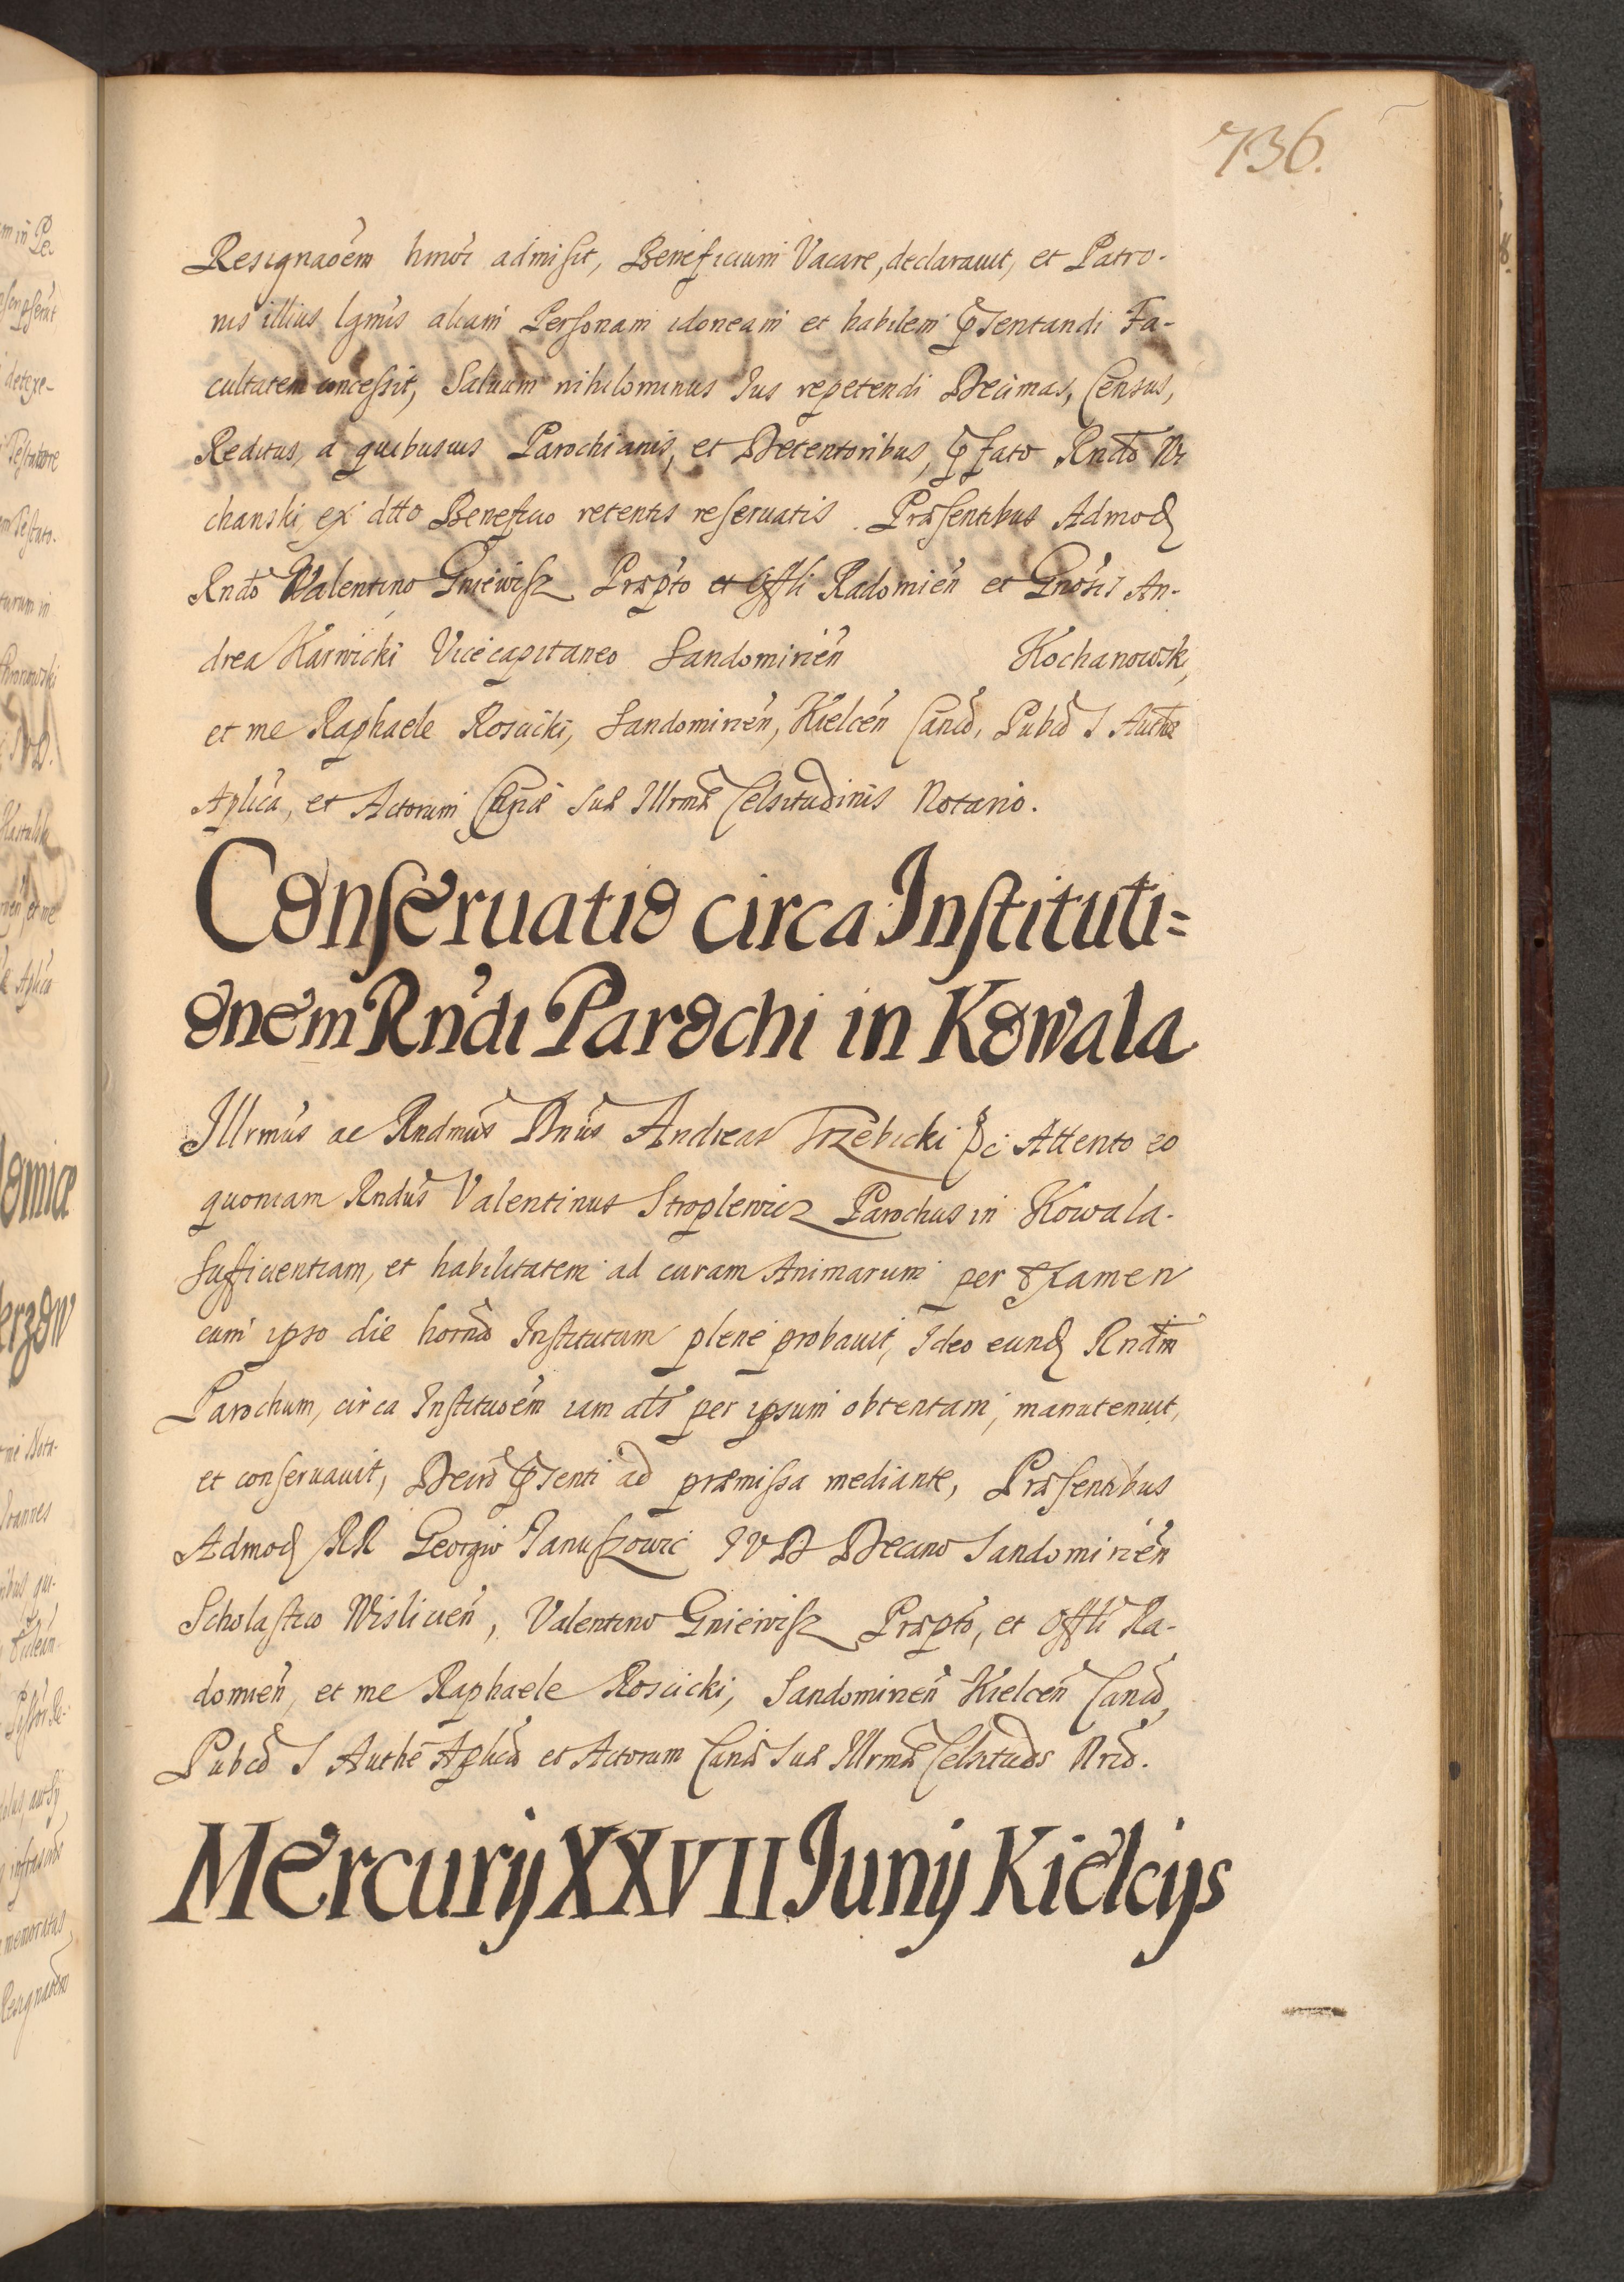 736.
Resignaoem hmoi admisit, Beneficium Vacare, declarauit, et Patro-
nis illius lgmis aliam Personam idoneam et habilem psentandi Fa-
cultatem concessit, Saluum nihilominus Jus repetendi Decimas, Census,
Reditus, a quibusuis Parochianis, et Detentoribus, pfato Rndo Mi
chanski, ex dtto Beneficio retentis reseruatis. Præsentibus Admod
Rndo Valentino Gniewisz Præpto et Offli Radomien et Gnosis An-
drea Karwicki Vicecapitaneo Sandomirien Kochanowski,
et me Raphaele Roscicki, Sandomirien, Kielcen Canco, Pubco S Authe
Aplica, et Actorum Canæ Suæ Illrmæ Celsitudinis Notario.
Conseruatio circa Instituti=
onem Rndi Parochi in Kowala
Illrmus ac Rndmus Dnus Andreas Trzebicki &c Attento eo
quoniam Rndus Valentinus Stroplewicz Parochus in Kowala.
Sufficientiam, et habilitatem ad curam Animarum per Examen
cum ipso die horno Institutum plene probauit, Ideo eund Rndm
Parochum, circa Instituoem iam als per ipsum obtentam, manutenuit,
et conseruauit, Decro psenti ad præmissa mediante, Præsentibus
Admod RR Georgio Januszowic JVD Decano Sandomirien
Scholastico Wislicien, Valentino Gniewisz Præpto, et Offli Ra-
domien, et me Raphaele Roscicki, Sandomirien Kielcen Canco,
Pubco S Authe Aplica et Actorum Canæ Suæ Illrmæ Celsituds Nrio.
Mercurij XXVII Junij Kielcijs